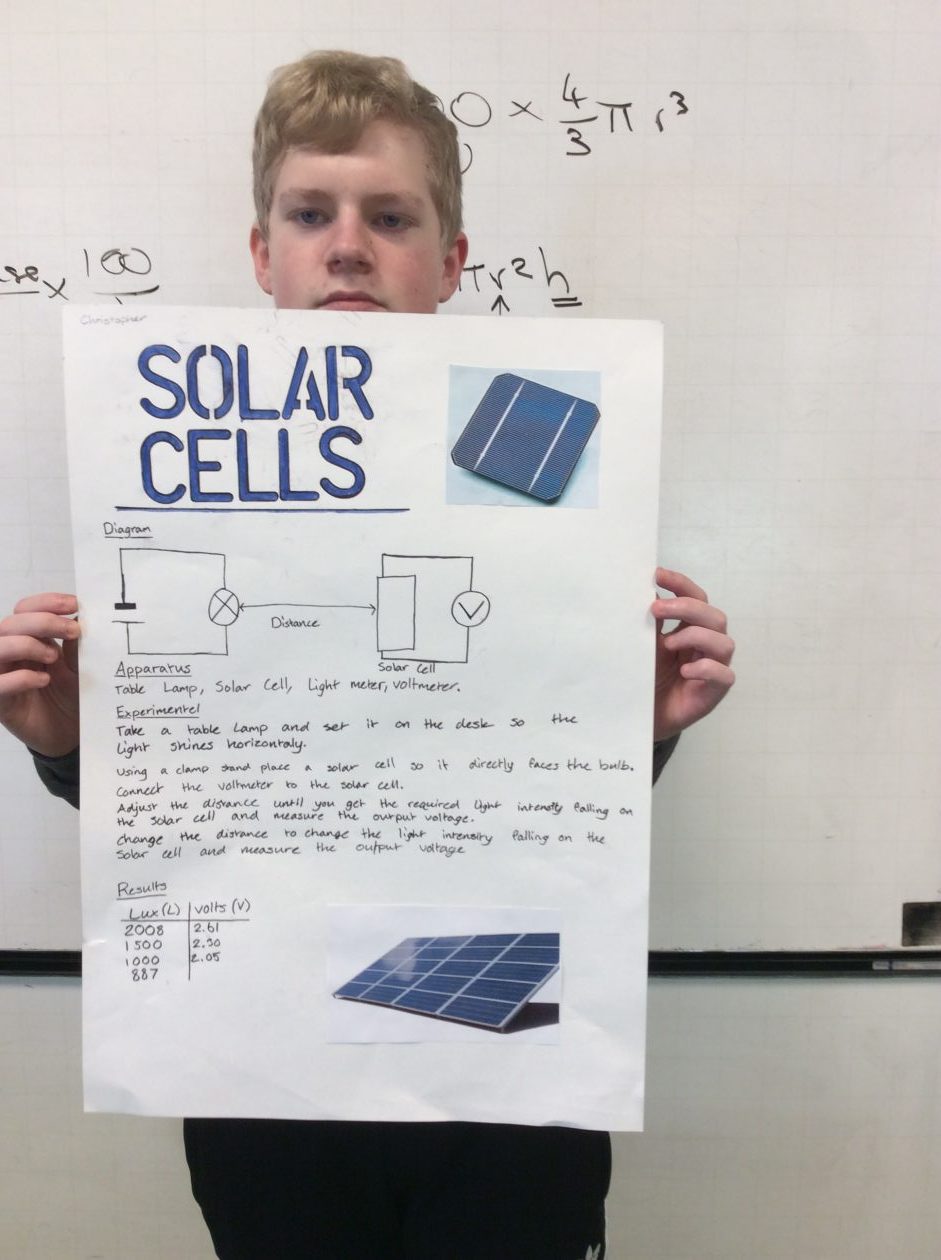 0 × 4/3 π r³
se x 100
πr²h
Christopher
SOLAR
CELLS
Diagram
V
Distance
Solar Cell
Apparatus
Table Lamp, Solar Cell, Light meter, voltmeter.
Experimentel
Take a table Lamp and set it on the desk so the
Light shines horizontaly.
Using a clamp stand place a solar cell so it directly faces the bulb.
Connect the voltmeter to the solar cell.
Adjust the distance until you get the required light intensity falling on
the solar cell and measure the output voltage.
change the distance to change the light intensity falling on the
solar cell and measure the output voltage
Results
Lux (L) volts (V)
2008 2.61
1500 2.30
1000 2.05
887